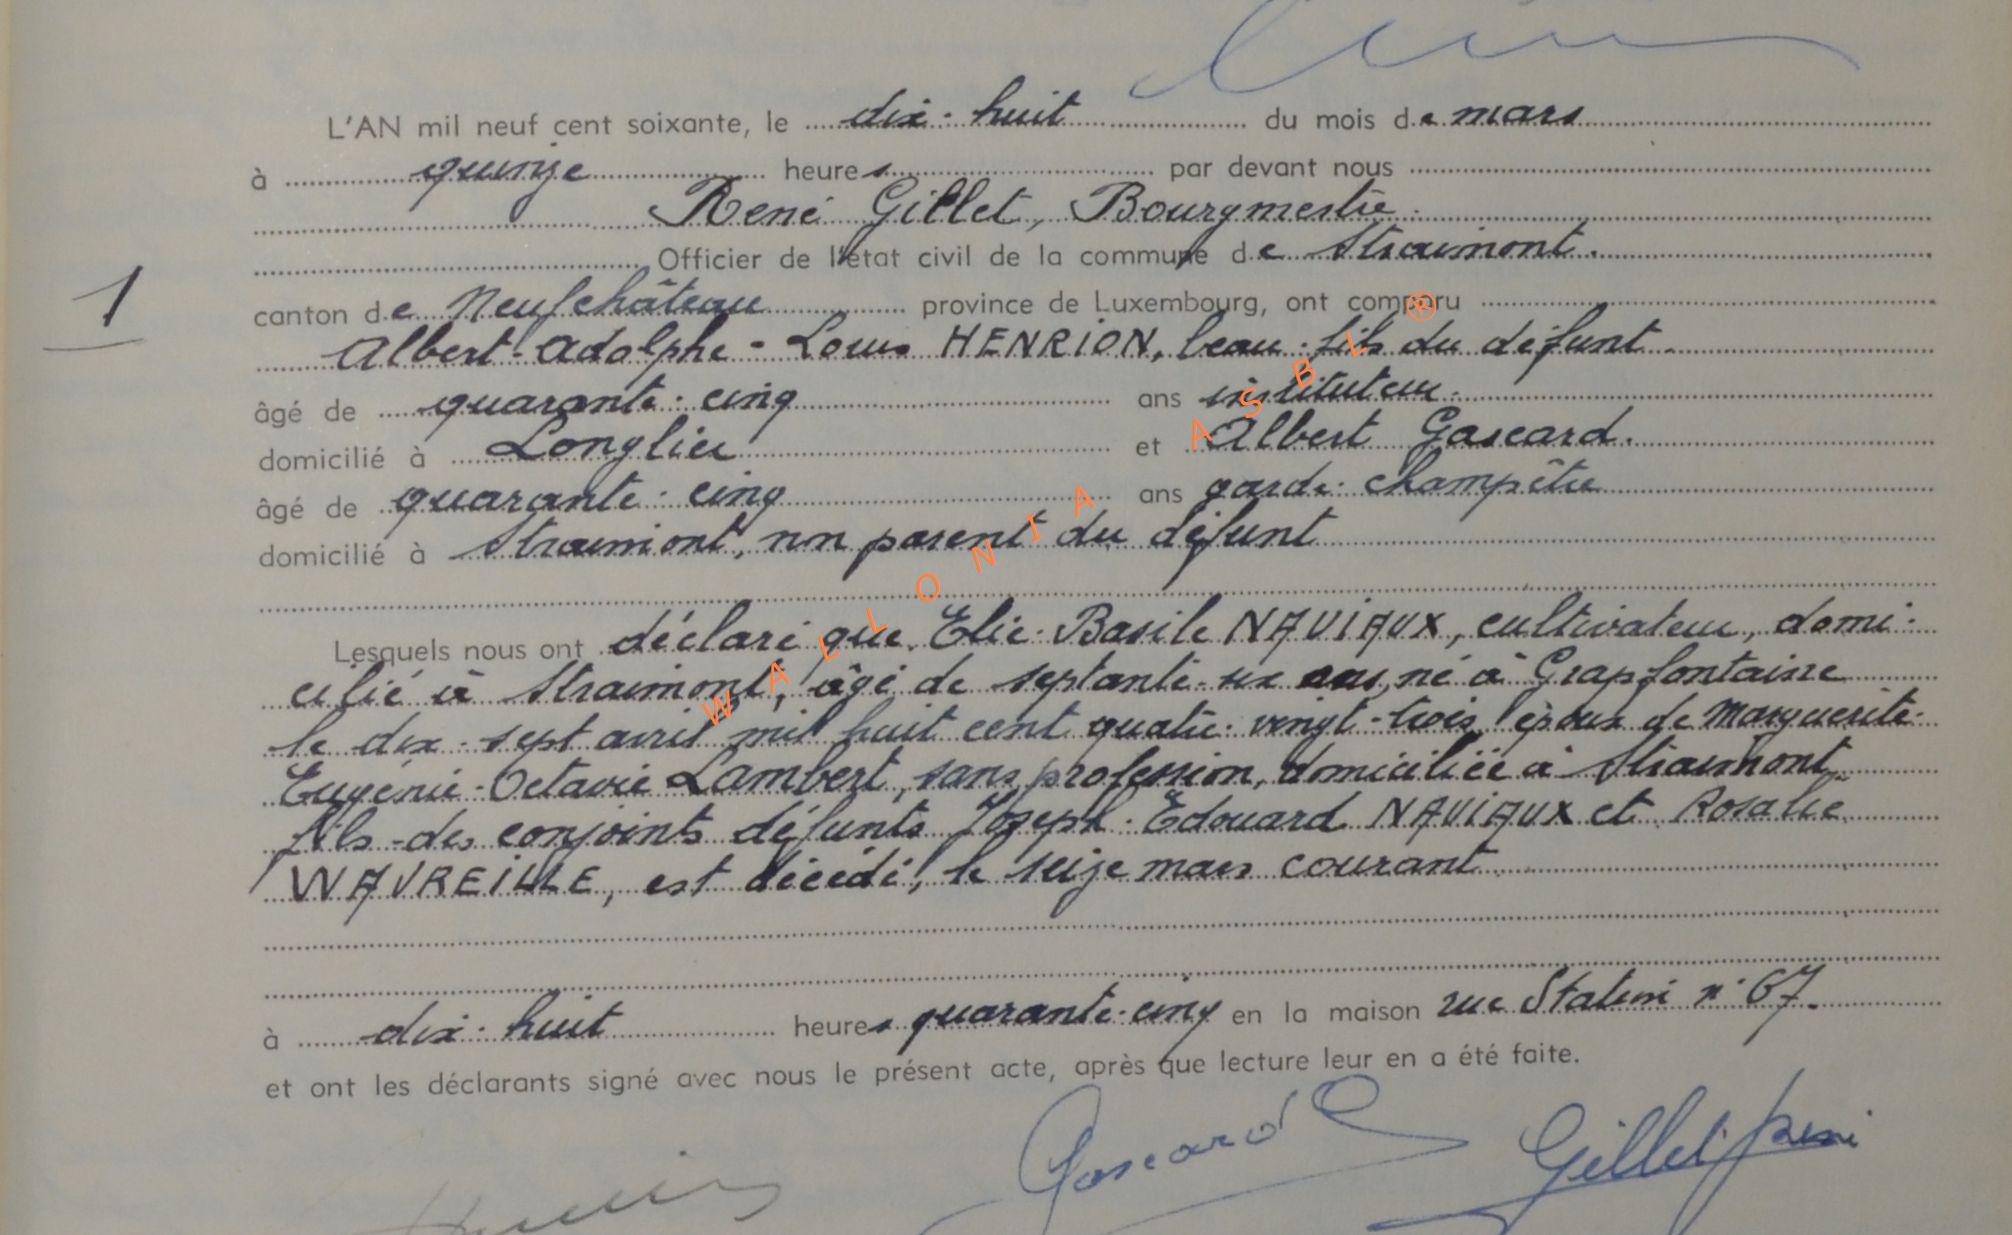 L'AN mil neuf cent soixante, le dix-huit du mois de mars
à quinze heures par devant nous
René Gillet, Bourgmestre.
Officier de l'état civil de la commune de Straimont.
1
canton de Neufchâteau province de Luxembourg, ont comparu
Albert-Adolphe-Louis HENRION, beau-fils du défunt.
âgé de quarante-cinq ans instituteur.
domicilié à Longlier et Albert Gascard.
âgé de quarante-cinq ans garde-champêtre
domicilié à Straimont, non parent du défunt
WALLONIA ASBL ®
Lesquels nous ont déclaré que Elie-Basile NAVIAUX, cultivateur, domi-
cilié à Straimont, âgé de septante-six ans, né à Grapfontaine
le dix-sept avril mil huit cent quatre-vingt-trois, époux de Marguerite-
Eugénie-Octavie Lambert, sans profession, domiciliée à Straimont,
fils des conjoints défunts Joseph-Edouard NAVIAUX et Rosalie
WAVREILLE, est décédé, le seize mars courant
à dix-huit heures quarante-cinq en la maison rue n° 67.
et ont les déclarants signé avec nous le présent acte, après que lecture leur en a été faite.
Gascard Gillet René